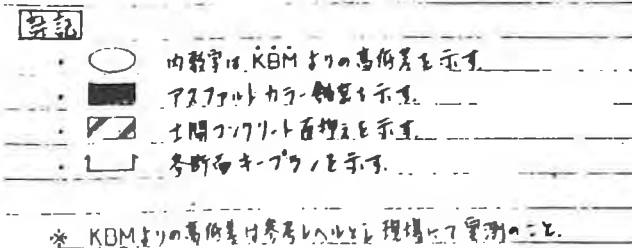 特記
・ 内数字は KBM よりの高低差を示す
・ アスファルトカラー舗装を示す
・ 土間コンクリート直押えを示す
・ 各断面キープランを示す.
※ KBMよりの高低差は参考レベルとし 現場にて実測のこと.